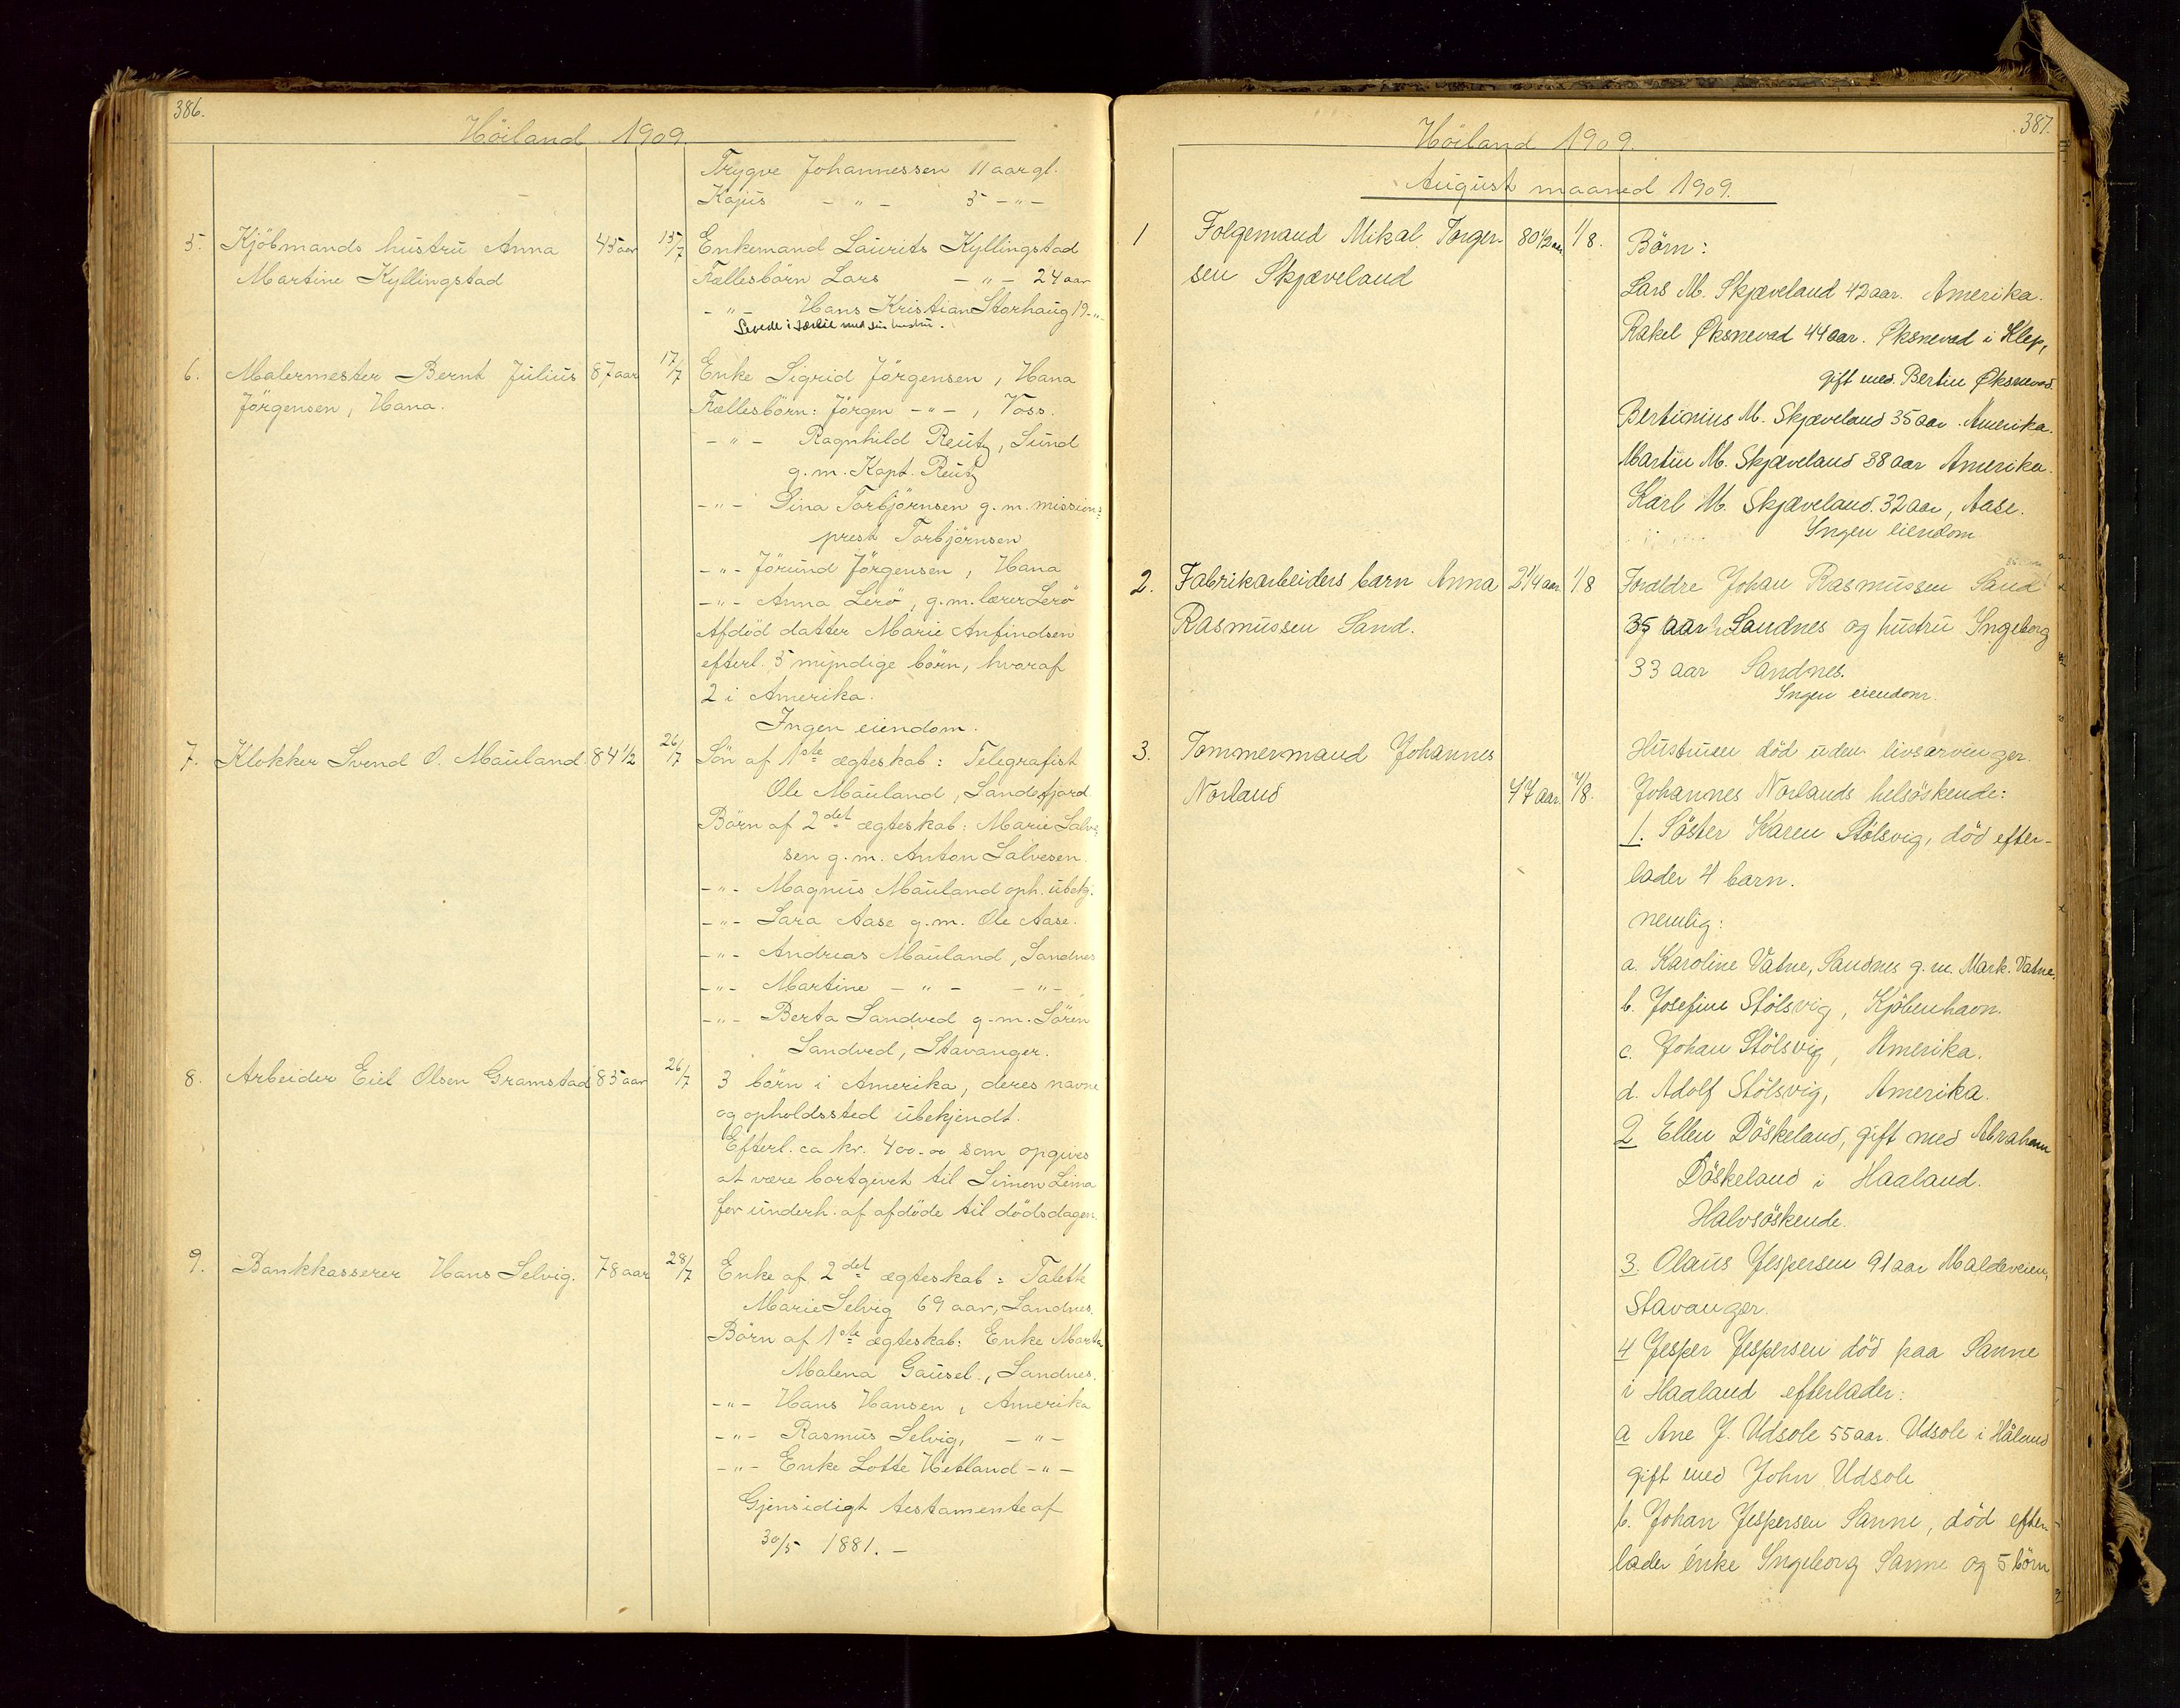 386.
Höiland 1909.
Trygve Johannessen 11 aar gl.
Kajus - " - 5 - " -
5. Kjöbmands hustru Anna 45 aar 15/7 Enkemand Laurits Kyllingstad
Martine Kyllingstad Fællesbörn Lars - " - 24 aar
- " - Hans Kristian Storhaug 19 - " -
Levede i særeie med sin hustru.
6. Malermester Bernt Julius 87 aar 17/7 Enke Sigrid Jörgensen, Hana
Jörgensen, Hana. Fællesbörn: Jörgen - " - , Voss.
- " - Ragnhild Reutz, Sund
g. m. Kapt. Reutz
- " - Dina Torbjörnsen g. m. missions=
prest Torbjörnsen
- " - Jörund Jörgensen, Hana
- " - Anna Lerö, g. m. lærer Lerö
Afdöd datter Marie Anfindsen
efterl. 5 myndige börn, hvoraf
2 i Amerika.
Ingen eiendom.
7. Klokker Svend O. Mauland 84 1/2 26/7 Sön af 1ste ægteskab: Telegrafist
Ole Mauland, Sandefjord
Börn af 2det ægteskab: Marie Salve=
sen g. m. Anton Salvesen.
- " - Magnus Mauland oph. ubekj.
- " - Sara Aase g. m. Ole Aase.
- " - Andreas Mauland, Sandnes
- " - Martine - " - - " -
- " - Berta Sandved g. m. Sören
Sandved, Stavanger.
8. Arbeider Eiel Olsen Gramstad 85 aar 26/7 3 börn i Amerika, deres navne
og opholdssted ubekjendt.
Efterl. ca kr. 400.00 som opgives
at være bortgivet til Simon Lima
for underh. af afdöde til dödsdagen.
9. Bankkasserer Hans Selvig. 78 aar 28/7 Enke af 2det ægteskab: Talette
Marie Selvig 69 aar, Sandnes.
Börn af 1ste ægteskab: Enke Marta
Malena Gausel, Sandnes.
- " - Hans Hansen, Amerika
- " - Rasmus Selvig, - " -
- " - Enke Lotte Hetland - " -
Gjensidigt testamente af
30/5 1881. -
387.
Höiland 1909.
August maaned 1909.
1 Folgemand Mikal Torger- 80 1/2 aar 1/8. Börn:
sen Skjæveland
Lars M. Skjæveland 42 aar. Amerika.
Rakel Øksnevad 44 aar. Øksnevad i Klep,
gift med. Bertin Øksnevad.
Bertinius M. Skjæveland 35 aar. Amerika.
Martin M. Skjæveland 38 aar Amerika.
Karl M. Skjæveland. 32 aar, Aase.
Ingen eiendom
2. Fabrikarbeiders barn Anna 2 1/4 aar. 1/8 Forældre Johan Rasmussen Sand
Rasmussen Sand. 35 aar Sandnes og hustru Ingeborg
33 aar Sandnes.
Ingen eiendom.
3. Tømmermand Johannes Hustruen död uden livsarvinger.
Norland 77 aar. 7/8. Johannes Norlands helsöskende:
1. Söster Karen Stölsvig, död efter-
lader 4 barn.
nemlig:
a. Karoline Vatne, Sandnes g. m. Mark. Vatne.
b. Josefine Stölsvig, Kjöbenhavn.
c. Johan Stölsvig, Amerika.
d. Adolf Stölsvig, Amerika.
2 Ellen Döskeland, gift med Abraham
Döskeland i Haaland.
Halvsöskende.
3. Olaus Jespersen 91 aar Maldeveien,
Stavanger.
4 Jesper Jespersen död paa Sanne
i Haaland efterlader:
a Ane J. Udsole 55 aar. Udsole i Håland
gift med John Udsole
b. Johan Jespersen Sanne, död efter-
lader enke Ingeborg Sanne og 5 börn